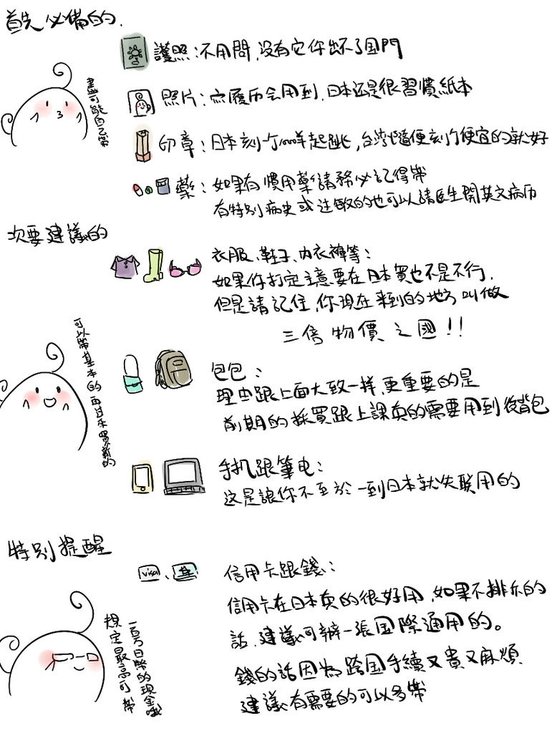 首先必備的.
護照:不用問,沒有它你出不了國門
照片:寫履歷會用到,日本还是很習慣紙本
印章:日本刻一个…起跳,台灣隨便刻个便宜的就好
藥:如果有慣用藥請務必記得帶
有特別病史或过敏的也可以請医生開英文病历
盡可能自己帶
次要建議的
衣服、鞋子、內衣褲等:
如果你打定主意要在日本買也不是不行,
但是請記住,你現在來到的地方叫做
三倍物價之國!!
可以帶基本的再过去買新的
包包:
理由跟上面大致一样,更重要的是
前期的採買跟上課真的需要用到後背包
手机跟筆电:
这是讓你不至於一到日本就失联用的
特別提醒
visa
信用卡跟錢:
信用卡在日本真的很好用,如果不排斥的
話,建議可辦一張国際通用的。
錢的話因為跨国手續又貴又麻煩
建議有需要的可以多帶
規定最高可帶
一百万日幣的現金哦